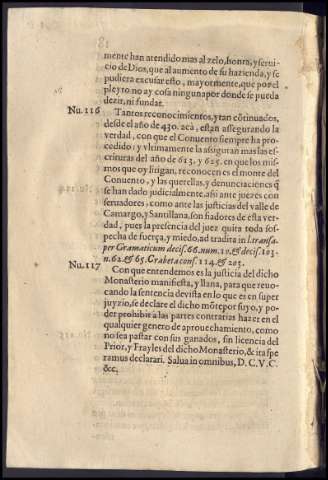 mente han atendido mas al zelo, honra, y serui-
cio de Dios, que al aumento de su hazienda, y se
pudiera excusar esto, mayormente, que por el
pleyto no ay cosa ninguna por donde se pueda
dezir, ni fundar.
Nu. 116 Tantos reconocimientos, y tan cōtinuados,
desde el año de 430. acà, estan assegurando la
verdad, con que el Conuento siempre ha pro-
cedido: y vltimamente la asseguran mas las es-
crituras del año de 613. y 625. en que los mis-
mos que oy litigan, reconocen es el monte del
Conuento, y las querellas, y denunciaciones q̄
se han dado judicialmente, assi ante juezes con
seruadores, como ante las justicias del valle de
Camargo, y Santillana, son fiadores de esta ver-
dad, pues la presencia del juez quita toda sos-
pecha de fuerça, y miedo, ad tradita in l. transa.
per Gramaticum decis. 66. num. 10. & decis. 103.
n. 62. & 65. Crabeta cons. 114. & 203.
Nu. 117 Con que entendemos es la justicia del dicho
Monasterio manifiesta, y llana, para que reuo-
cando la sentencia de vista en lo que es en su per
juyzio, se declare el dicho mōte por suyo, y po-
der prohibir a las partes contrarias hazer en el
qualquier genero de aprouechamiento, como
no sea pastar con sus ganados, sin licencia del
Prior, y Frayles del dicho Monasterio, & ita spe
ramus declarari. Salua in omnibus, D. C. V. C.
&c.